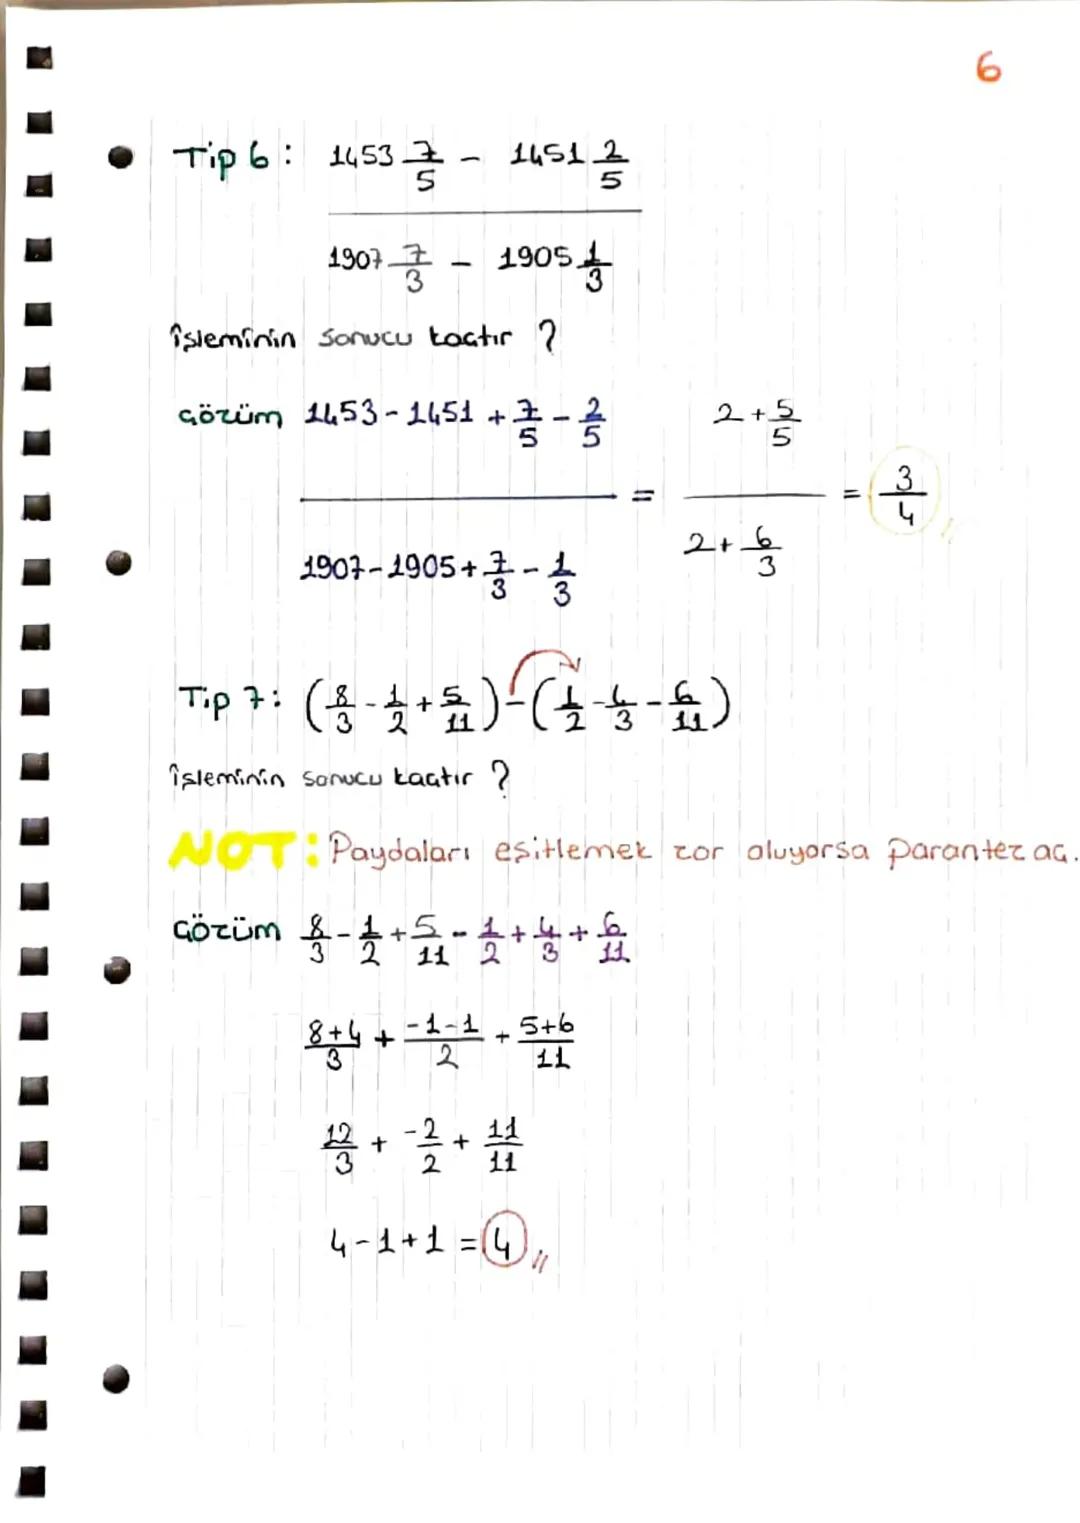 6
Tip 6: 1453 7/5 - 1451 2/5
1907 7/3 - 1905 1/3
işleminin sonucu kaçtır ?
Çözüm 1453-1451 + 7/5 - 2/5 = 2 + 5/5 = 3/4
1907-1905 + 7/3 - 1/3 2 + 6/3
Tip 7: (8/3 - 1/2 + 5/11) - (1/2 - 4/3 - 6/11)
işleminin sonucu kaçtır ?
NOT: Paydaları eşitlemek zor oluyorsa parantez aç.
Çözüm 8/3 - 1/2 + 5/11 - 1/2 + 4/3 + 6/11
8+4/3 + -1-1/2 + 5+6/11
12/3 + -2/2 + 11/11
4-1+1 = 4